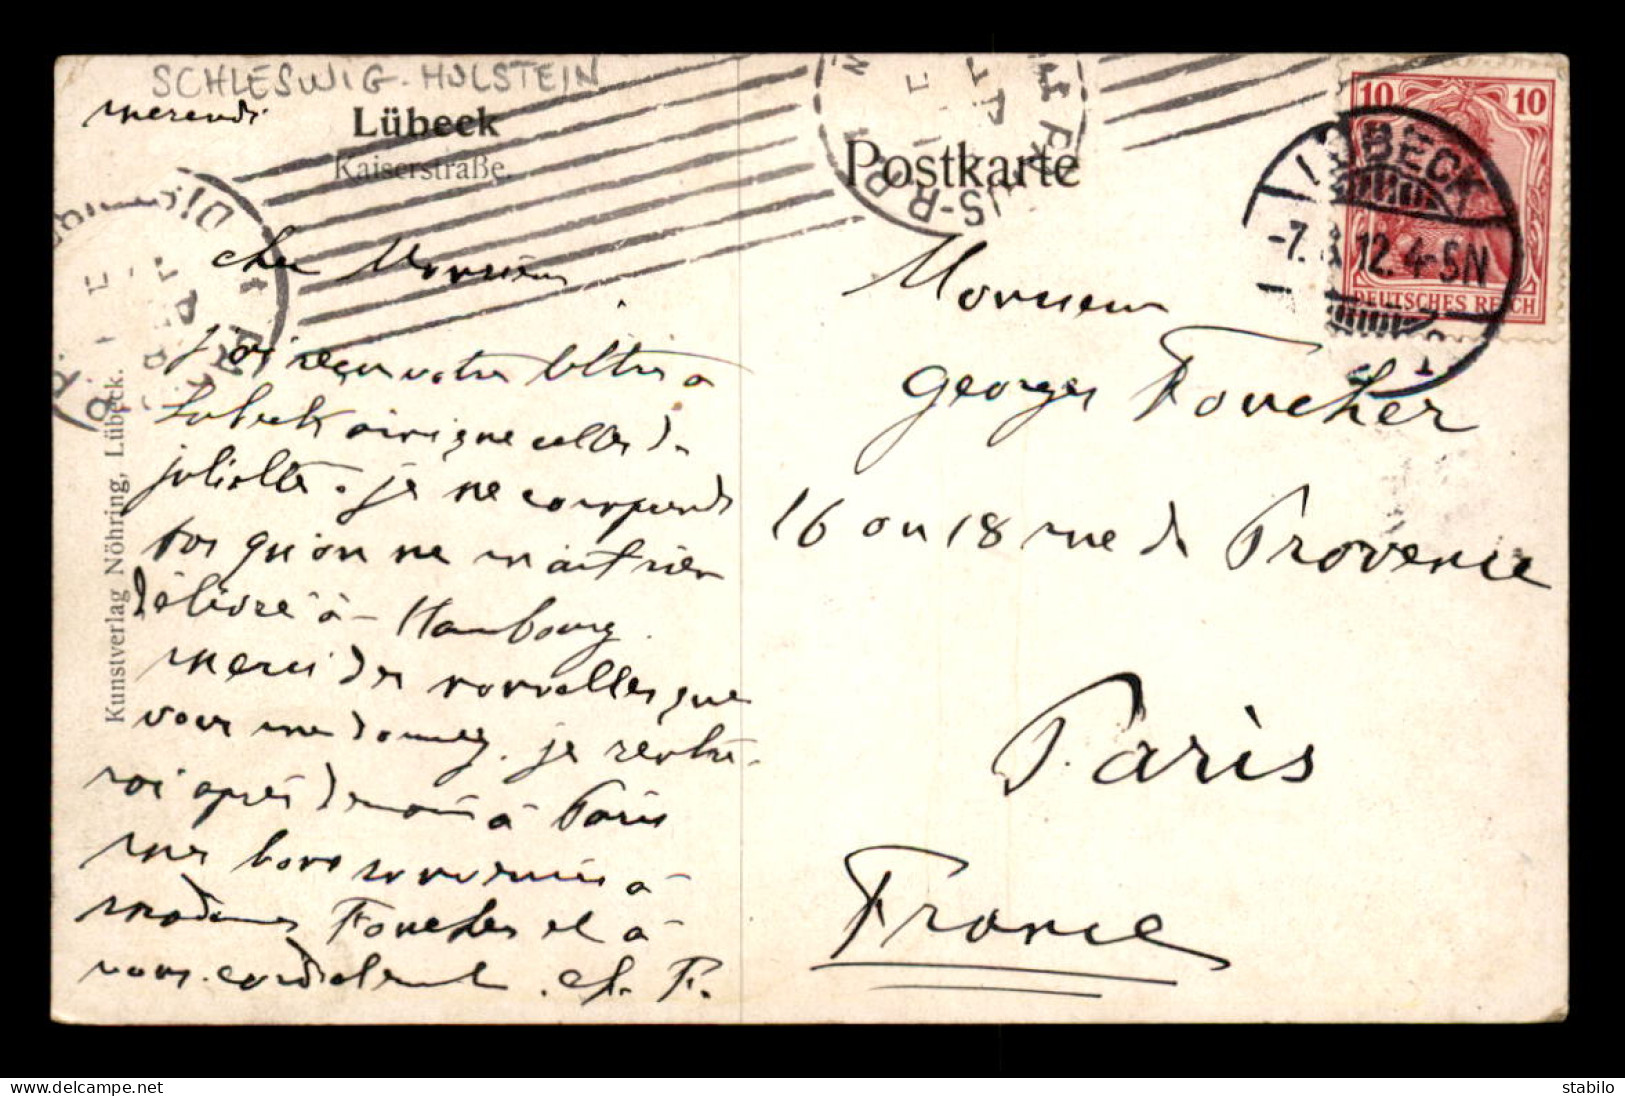 SCHLESWIG-HOLSTEIN
mercredi
Lübeck
Kaiserstraße.
Postkarte
10 10
DEUTSCHES REICH
LÜBECK
-7. 12. 4-5N
1
Kunstverlag Nöhring, Lübeck.
cher Monsieur
j'ai reçu votre lettre à
Lubeck ainsi que celles de
juliette. je ne comprends
pas qu'on ne m'ait rien
délivré à Hambourg.
merci des nouvelles que
vous me donnez. je rentre-
rai après demain à Paris
mes bons souvenirs à
madame Foucher et à
vous. cordialement. ch. F.
Monsieur
Georges Foucher
16 ou 18 rue de Provence
Paris
France
delcampe.net
stabilo